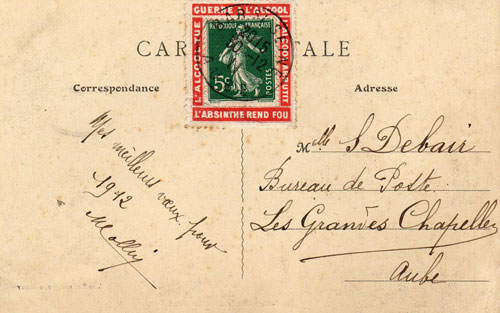 GUERRE À L'ALCOOL
L'ALCOOL TUE
RÉPUBLIQUE FRANÇAISE
5c
POSTES
L'ALCOOL ABRUTIT
L'ABSINTHE REND FOU
CAR TALE
Correspondance
Adresse
Mes meilleurs vœux pour
1912
Mlle S Debair
Bureau de Poste
Les Grandes Chapelles
Aube